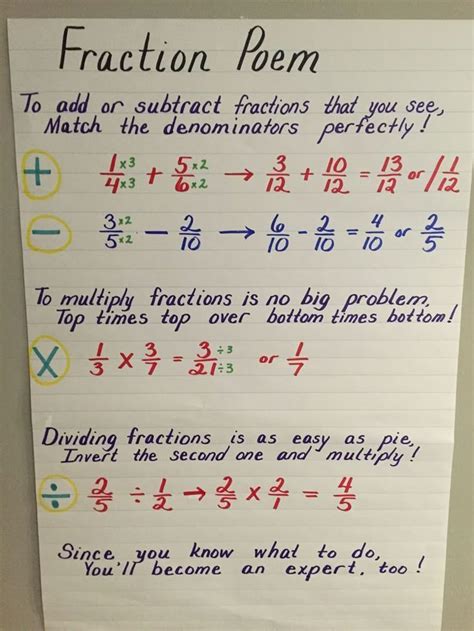 Fraction Poem
To add or subtract fractions that you see,
Match the denominators perfectly!
+ 1/4 ×3/×3 + 5/6 ×2/×2 → 3/12 + 10/12 = 13/12 or 1 1/12
− 3/5 ×2/×2 − 2/10 → 6/10 − 2/10 = 4/10 or 2/5
To multiply fractions is no big problem,
Top times top over bottom times bottom!
× 1/3 × 3/7 = 3/21 ÷3/÷3 or 1/7
Dividing fractions is as easy as pie,
Invert the second one and multiply!
÷ 2/5 ÷ 1/2 → 2/5 × 2/1 = 4/5
Since you know what to do,
You'll become an expert, too!